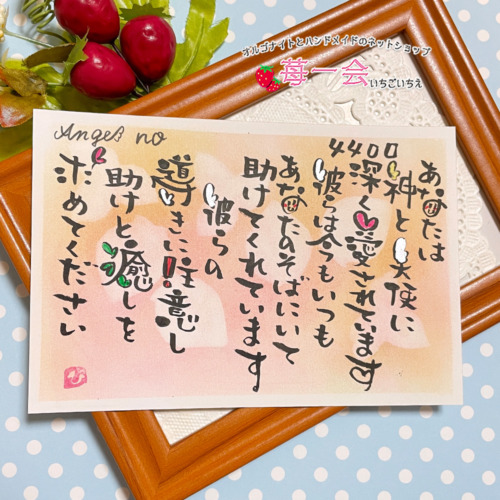 オルゴナイトとハンドメイドのネットショップ
苺一会
いちごいちえ
Angel no
4400
あなたは
神と天使に
深く愛されています
彼らは今もいつも
あなたのそばにいて
助けてくれています
彼らの
導きに注意し
助けと癒しを
求めてください